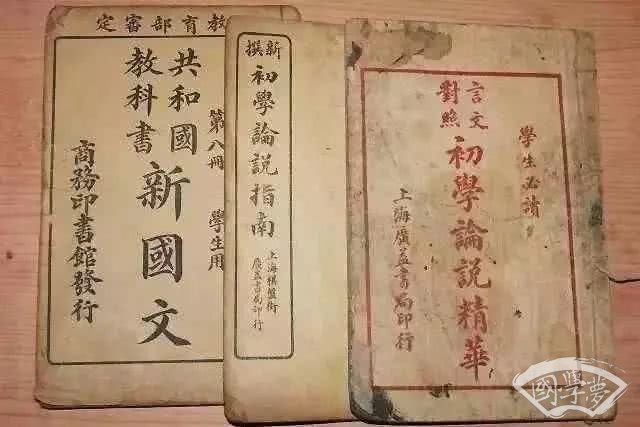 教育部審定
第八冊 學生用
共和國
教科書
新國文
商務印書館發行
新撰
初學論說指南
上海棋盤街
廣益書局印行
學生必讀
言文
對照
初學論說精華
上海廣益書局印行
國學夢